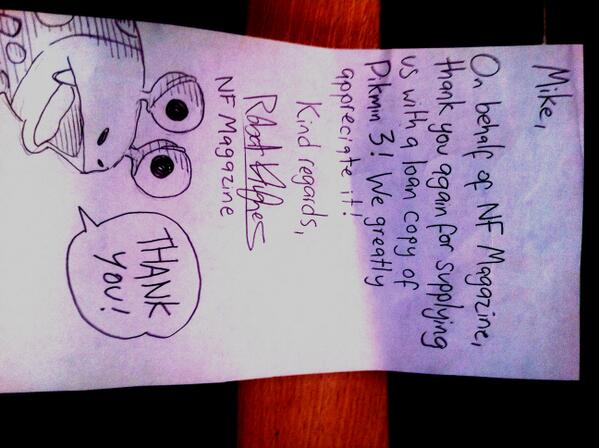 Mike,
On behalf of NF Magazine,
thank you again for supplying
us with a loan copy of
Pikmin 3! We greatly
appreciate it!
Kind regards,
Robert Hughes
NF Magazine
THANK
YOU!